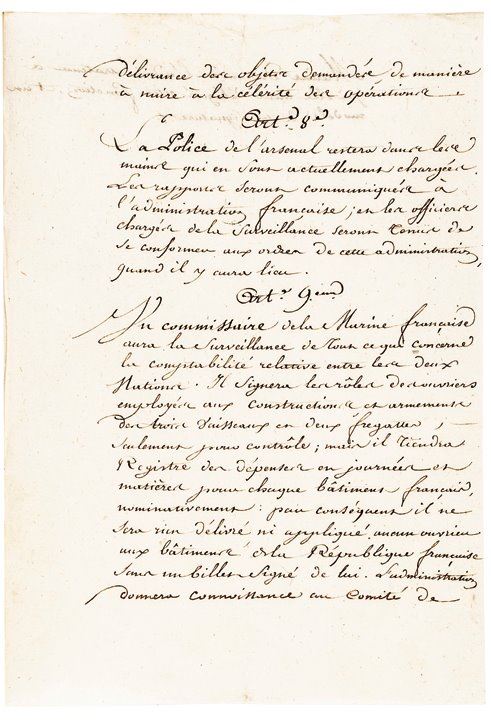 délivrance des objets demandés de manière
à nuire à la célérité des opérations
Art. 8.e
La Police de l'arsenal restera dans les
mains qui en sont actuellement chargées.
Les rapports seront communiqués à
l'administration française; et les officiers
chargés de la surveillance seront tenus de
se conformer aux ordres de cette administration,
quand il y aura lieu.
Art. 9.eme
Un commissaire de la Marine française
aura la surveillance de tout ce qui concerne
la comptabilité relative entre les deux
Nations. Il signera les rôles des ouvriers
employés aux constructions et armements
des trois vaisseaux et deux fregattes,
seulement pour contrôle; mais il tiendra
Registre des dépenses en journées et
matières pour chaque bâtiment français,
nominativement: par conséquent il ne
sera rien délivré ni appliqué aucun ouvrier
aux bâtiments de la République française
sans un billet signé de lui. L'administration
donnera connoissance au Comité de